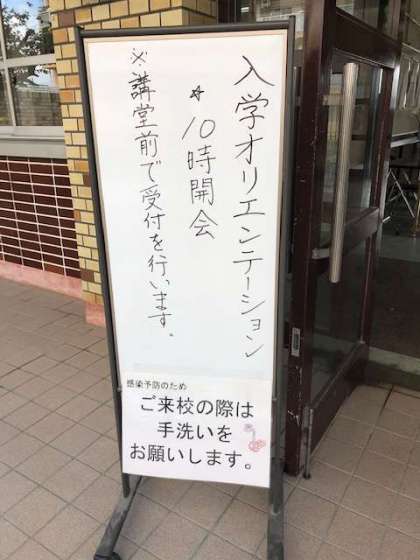 入学オリエンテーション
☆10時開会
※講堂前で受付を行います。
感染予防のため
ご来校の際は
手洗いを
お願いします。